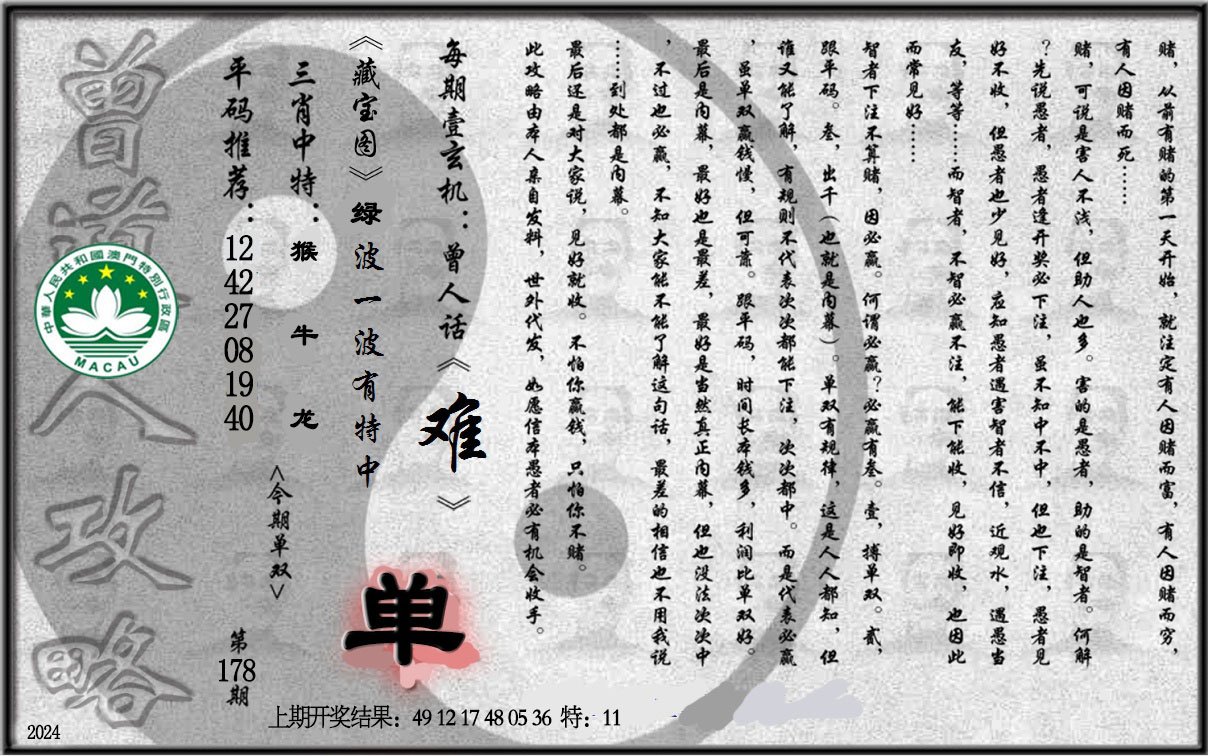 赌，从前有赌的第一天开始，就注定有人因赌而富，有人因赌而穷，
有人因赌而死……
赌，可说是害人不浅，但助人也多。害的是愚者，助的是智者。何解
？先说愚者，愚者逢开奖必下注，虽不知中不中，但也下注，愚者见
好不收，但愚者也少见好，应知愚者遇害智者不信，近观水，遇愚当
友，等等……而智者，不智必赢不注，能下能收，见好即收，也因此
而常见好……
智者下注不算赌，因必赢。何谓必赢？必赢有叁。壹，搏单双。贰，
跟平码。叁，出千（也就是内幕）。单双有规律，这是人人都知，但
谁又能了解，有规则不代表次次都能下注，次次都中。而是代表必赢
，虽单双赢钱慢，但可靠。跟平码，时间长本钱多，利润比单双好。
最后是内幕，最好也是最差，最好是当然真正内幕，但也没法次次中
，不过也必赢，不知大家能不能了解这句话，最差的相信也不用我说
……到处都是内幕。
最后还是对大家说，见好就收。不怕你赢钱，只怕你不赌。
此攻略由本人亲自发料，世外代发，如愿信本愚者必有机会收手。
每期壹玄机：曾人话《难》
《藏宝图》绿波一波有特中
单
三肖中特：猴 牛 龙
<今期单双>
平码推荐：12 42 27 08 19 40
第178期
曾道人攻略
中華人民共和國澳門特別行政區
MACAU
上期开奖结果：49 12 17 48 05 36 特：11
2024